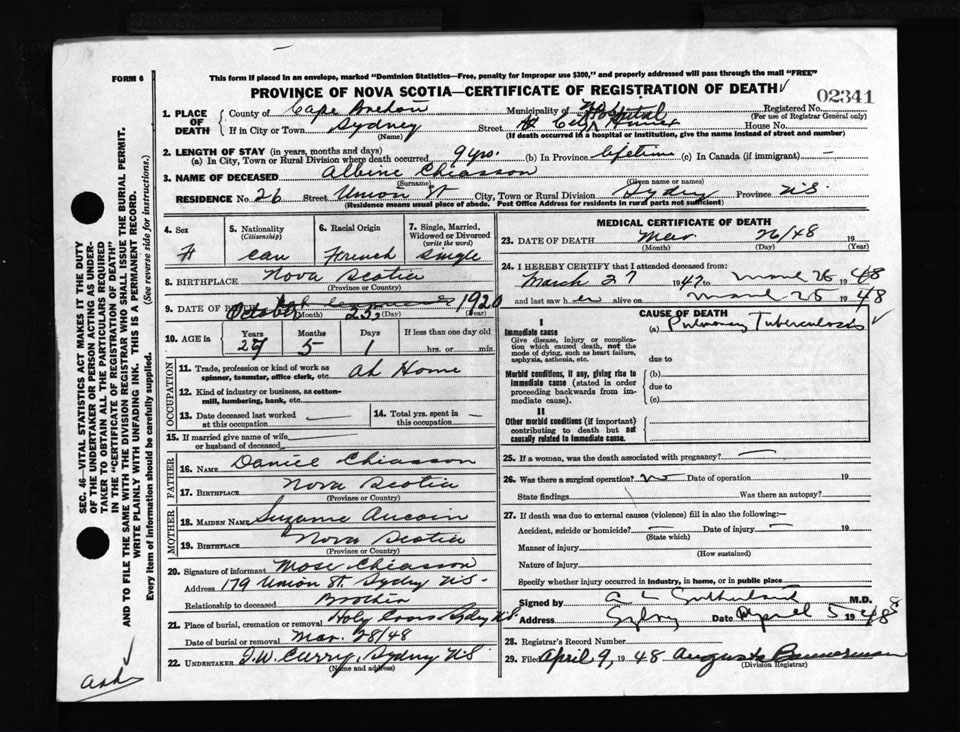 FORM 6
This form if placed in an envelope, marked "Dominion Statistics—Free, penalty for improper use $300," and properly addressed will pass through the mail "FREE"
PROVINCE OF NOVA SCOTIA—CERTIFICATE OF REGISTRATION OF DEATH
02341
1. PLACE OF DEATH County of Cape Breton Municipality of Registered No.
(For use of Registrar General only)
If in City or Town Sydney Street Hospital House No.
(Name) (If death occurred in a hospital or institution, give the name instead of street and number)
2. LENGTH OF STAY (in years, months and days)
(a) In City, Town or Rural Division where death occurred 9 yrs. (b) In Province lifetime (c) In Canada (if immigrant) —
3. NAME OF DECEASED Albine Chiasson
(Surname) (Given name or names)
RESIDENCE No. 26 Street Union St City, Town or Rural Division Sydney Province N.S.
(Residence means usual place of abode. Post Office Address for residents in rural parts not sufficient)
4. Sex 5. Nationality (Citizenship) 6. Racial Origin 7. Single, Married, Widowed or Divorced (write the word)
F Can French Single
8. BIRTHPLACE Nova Scotia
(Province or Country)
9. DATE OF BIRTH October 25, 1920
(Month) (Day) (Year)
10. AGE in Years Months Days If less than one day old
27 5 1 hrs. or min.
OCCUPATION
11. Trade, profession or kind of work as spinner, teamster, office clerk, etc. At Home
12. Kind of industry or business, as cotton-mill, lumbering, bank, etc.
13. Date deceased last worked at this occupation —
14. Total yrs. spent in this occupation —
15. If married give name of wife or husband of deceased
FATHER
16. NAME Daniel Chiasson
17. BIRTHPLACE Nova Scotia
(Province or Country)
MOTHER
18. MAIDEN NAME Suzanne Aucoin
19. BIRTHPLACE Nova Scotia
(Province or Country)
20. Signature of informant Mose Chiasson
Address 179 Union St. Sydney N.S.
Relationship to deceased Brother
21. Place of burial, cremation or removal Holy Cross Sydney N.S.
Date of burial or removal Mar. 28/48
22. UNDERTAKER T.W. Curry, Sydney N.S.
(Name and address)
MEDICAL CERTIFICATE OF DEATH
23. DATE OF DEATH Mar. 26/48 19
(Month) (Day) (Year)
24. I HEREBY CERTIFY that I attended deceased from:
March 27 1947 to March 26 1948
and last saw her alive on March 25 1948
CAUSE OF DEATH
I
Immediate cause (a) Pulmonary Tuberculosis
Give disease, injury or complication which caused death, not the mode of dying, such as heart failure, asphyxia, asthenia, etc.
due to
Morbid conditions, if any, giving rise to immediate cause (stated in order proceeding backwards from immediate cause).
(b)
due to
(c)
II
Other morbid conditions (if important) contributing to death but not causally related to immediate cause.
25. If a woman, was the death associated with pregnancy? —
26. Was there a surgical operation? no Date of operation 19
State findings Was there an autopsy?
27. If death was due to external causes (violence) fill in also the following:—
Accident, suicide or homicide? — Date of injury — 19
(State which)
Manner of injury
(How sustained)
Nature of injury
Specify whether injury occurred in industry, in home, or in public place
Signed by A L Sutherland M.D.
Address Sydney Date April 5 1948
28. Registrar's Record Number
29. Filed April 9, 1948 Bannerman
(Division Registrar)
SEC. 46—VITAL STATISTICS ACT MAKES IT THE DUTY
OF THE UNDERTAKER OR PERSON ACTING AS UNDERTAKER
TO OBTAIN ALL THE PARTICULARS REQUIRED
IN THE "CERTIFICATE OF REGISTRATION OF DEATH"
AND TO FILE THE SAME WITH THE DIVISION REGISTRAR WHO SHALL ISSUE THE BURIAL PERMIT.
WRITE PLAINLY WITH UNFADING INK. THIS IS A PERMANENT RECORD.
Every item of information should be carefully supplied. (See reverse side for instructions.)